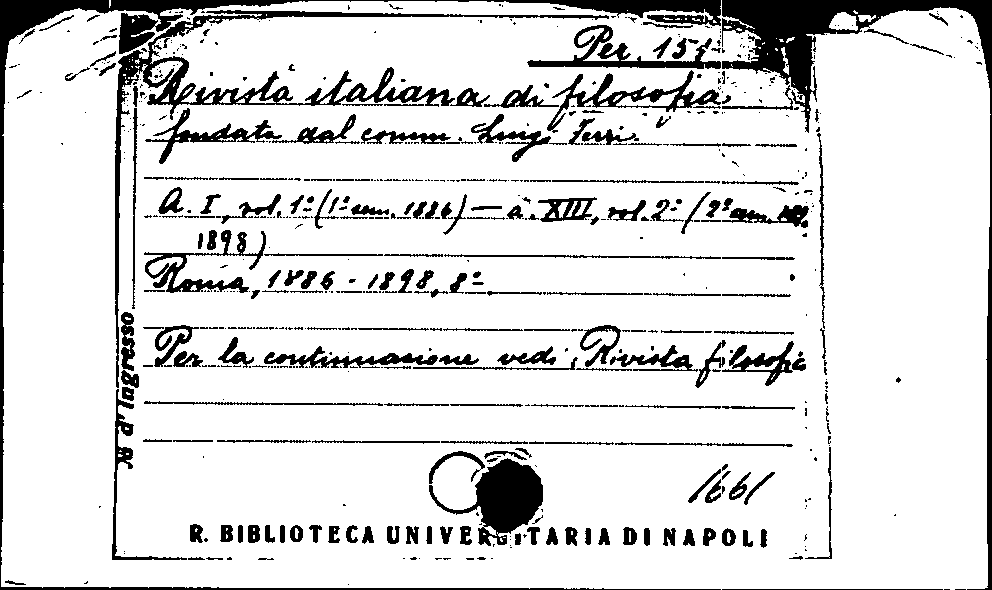 Per. 151
Rivista italiana di filosofia
fondata dal comm. Luigi Ferri.
A. I, vol. 1º (1º sem. 1886) — a. XIII, vol. 2º (2º sem.
1898)
Roma, 1886 - 1898, 8º.
Per la continuazione vedi: Rivista filosofica
Nº d'Ingresso
1661
R. BIBLIOTECA UNIVERSITARIA DI NAPOLI